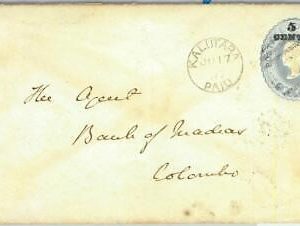 5
CENTS
KALUTARA
PAID
The Agent
Bank of Madras
Colombo